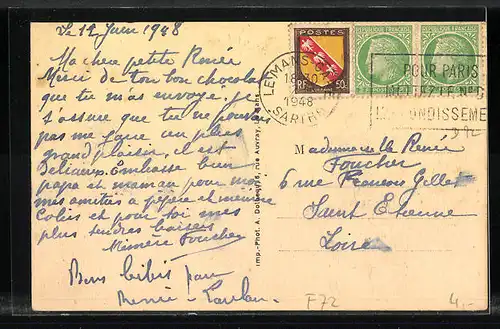 Le 12 Juin 1948
Ma chère petite Renée
Merci de ton bon chocolat
que tu m'as envoyé, je
t'assure que tu ne pouvais
pas me faire un plus
grand plaisir, il est
Delicieux. Embrasse bien
papa et maman pour moi
mes amitiés à pépère et mémère
Colis et pour toi mes
plus tendres baisers
Foucher
Bons bibis pour
Renée
POSTES
LORRAINE
50c
RF
POSTES
LE MANS
18 30
1948
SARTHE
POUR PARIS
METTEZ LE N°
L'ARRONDISSEMENT
M
Mademoiselle Renée
Foucher
6 rue François Gillet
Saint Etienne
Loire
Imp.-Phot. A. Dolbeau, rue Auvray, Le Mans
F72
4,-